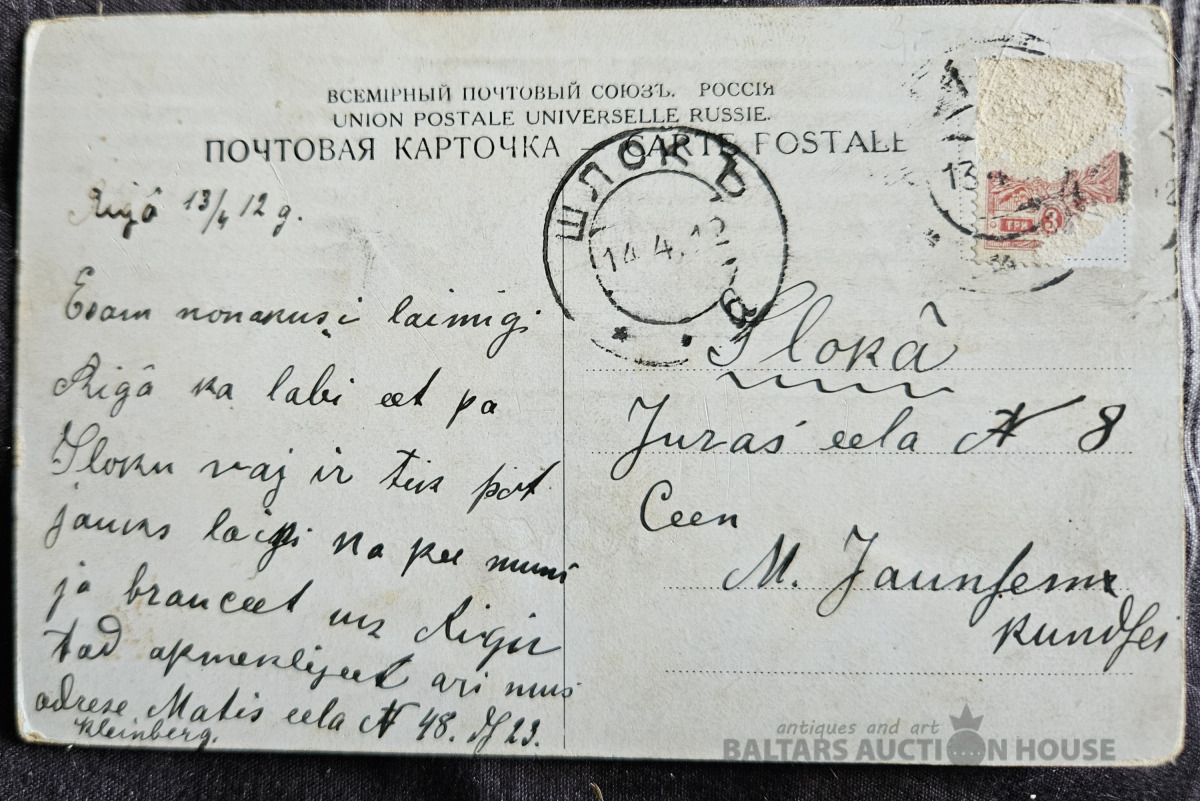 ВСЕМІРНЫЙ ПОЧТОВЫЙ СОЮЗЪ. РОССІЯ
UNION POSTALE UNIVERSELLE RUSSIE.
ПОЧТОВАЯ КАРТОЧКА – CARTE POSTALE
ШЛОКЪ
14.4.12
13
ТРИ 3
Rigâ 13/4 12 g.
Esam nonakuši laimigi
Rigâ ka labi eet pa
Sloku vaj ir tik pat
jauks laiks ka pee mums
ja brauceet uz Rigu
tad apmeklejeet ari mus
adrese Matis eela N 48. dz 23.
Kleinberg.
Slokâ
Juras eela N 8
Ceen
M. Jaunsem
kundsei
antiques and art
BALTARS AUCTION HOUSE